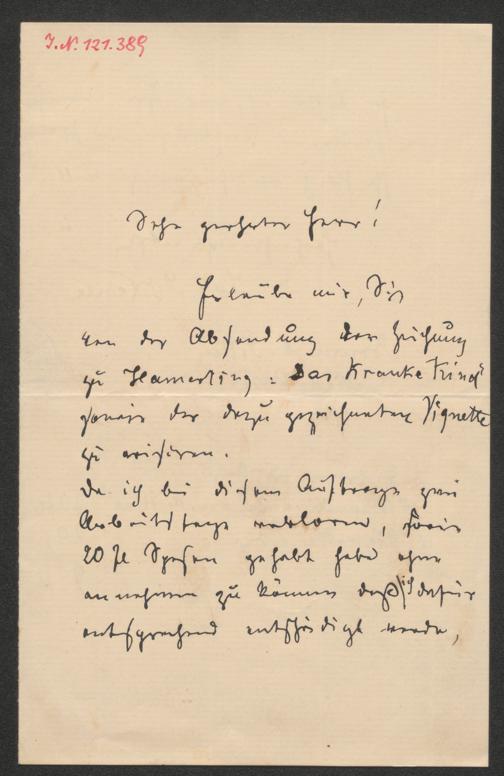 J.N. 121.389
Sehr geehrter Herr!
Erlaube mir, Sie
von der Absendung der Zeichnung
zu Hamerling: Das Kranke Kind
sowie der dazu gezeichneten Vignette
zu avisiren.
Da ich bei diesem Auftrage zwei
Arbeitstage verloren, sowie
20 fl Spesen gehabt habe ohne
annehmen zu können daß ich dafür
entsprechend entschädigt werde,